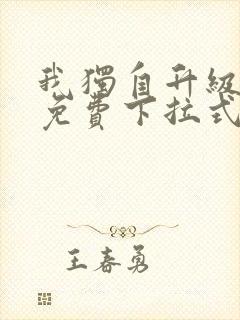 我獨自升級
免費下拉式
王春勇